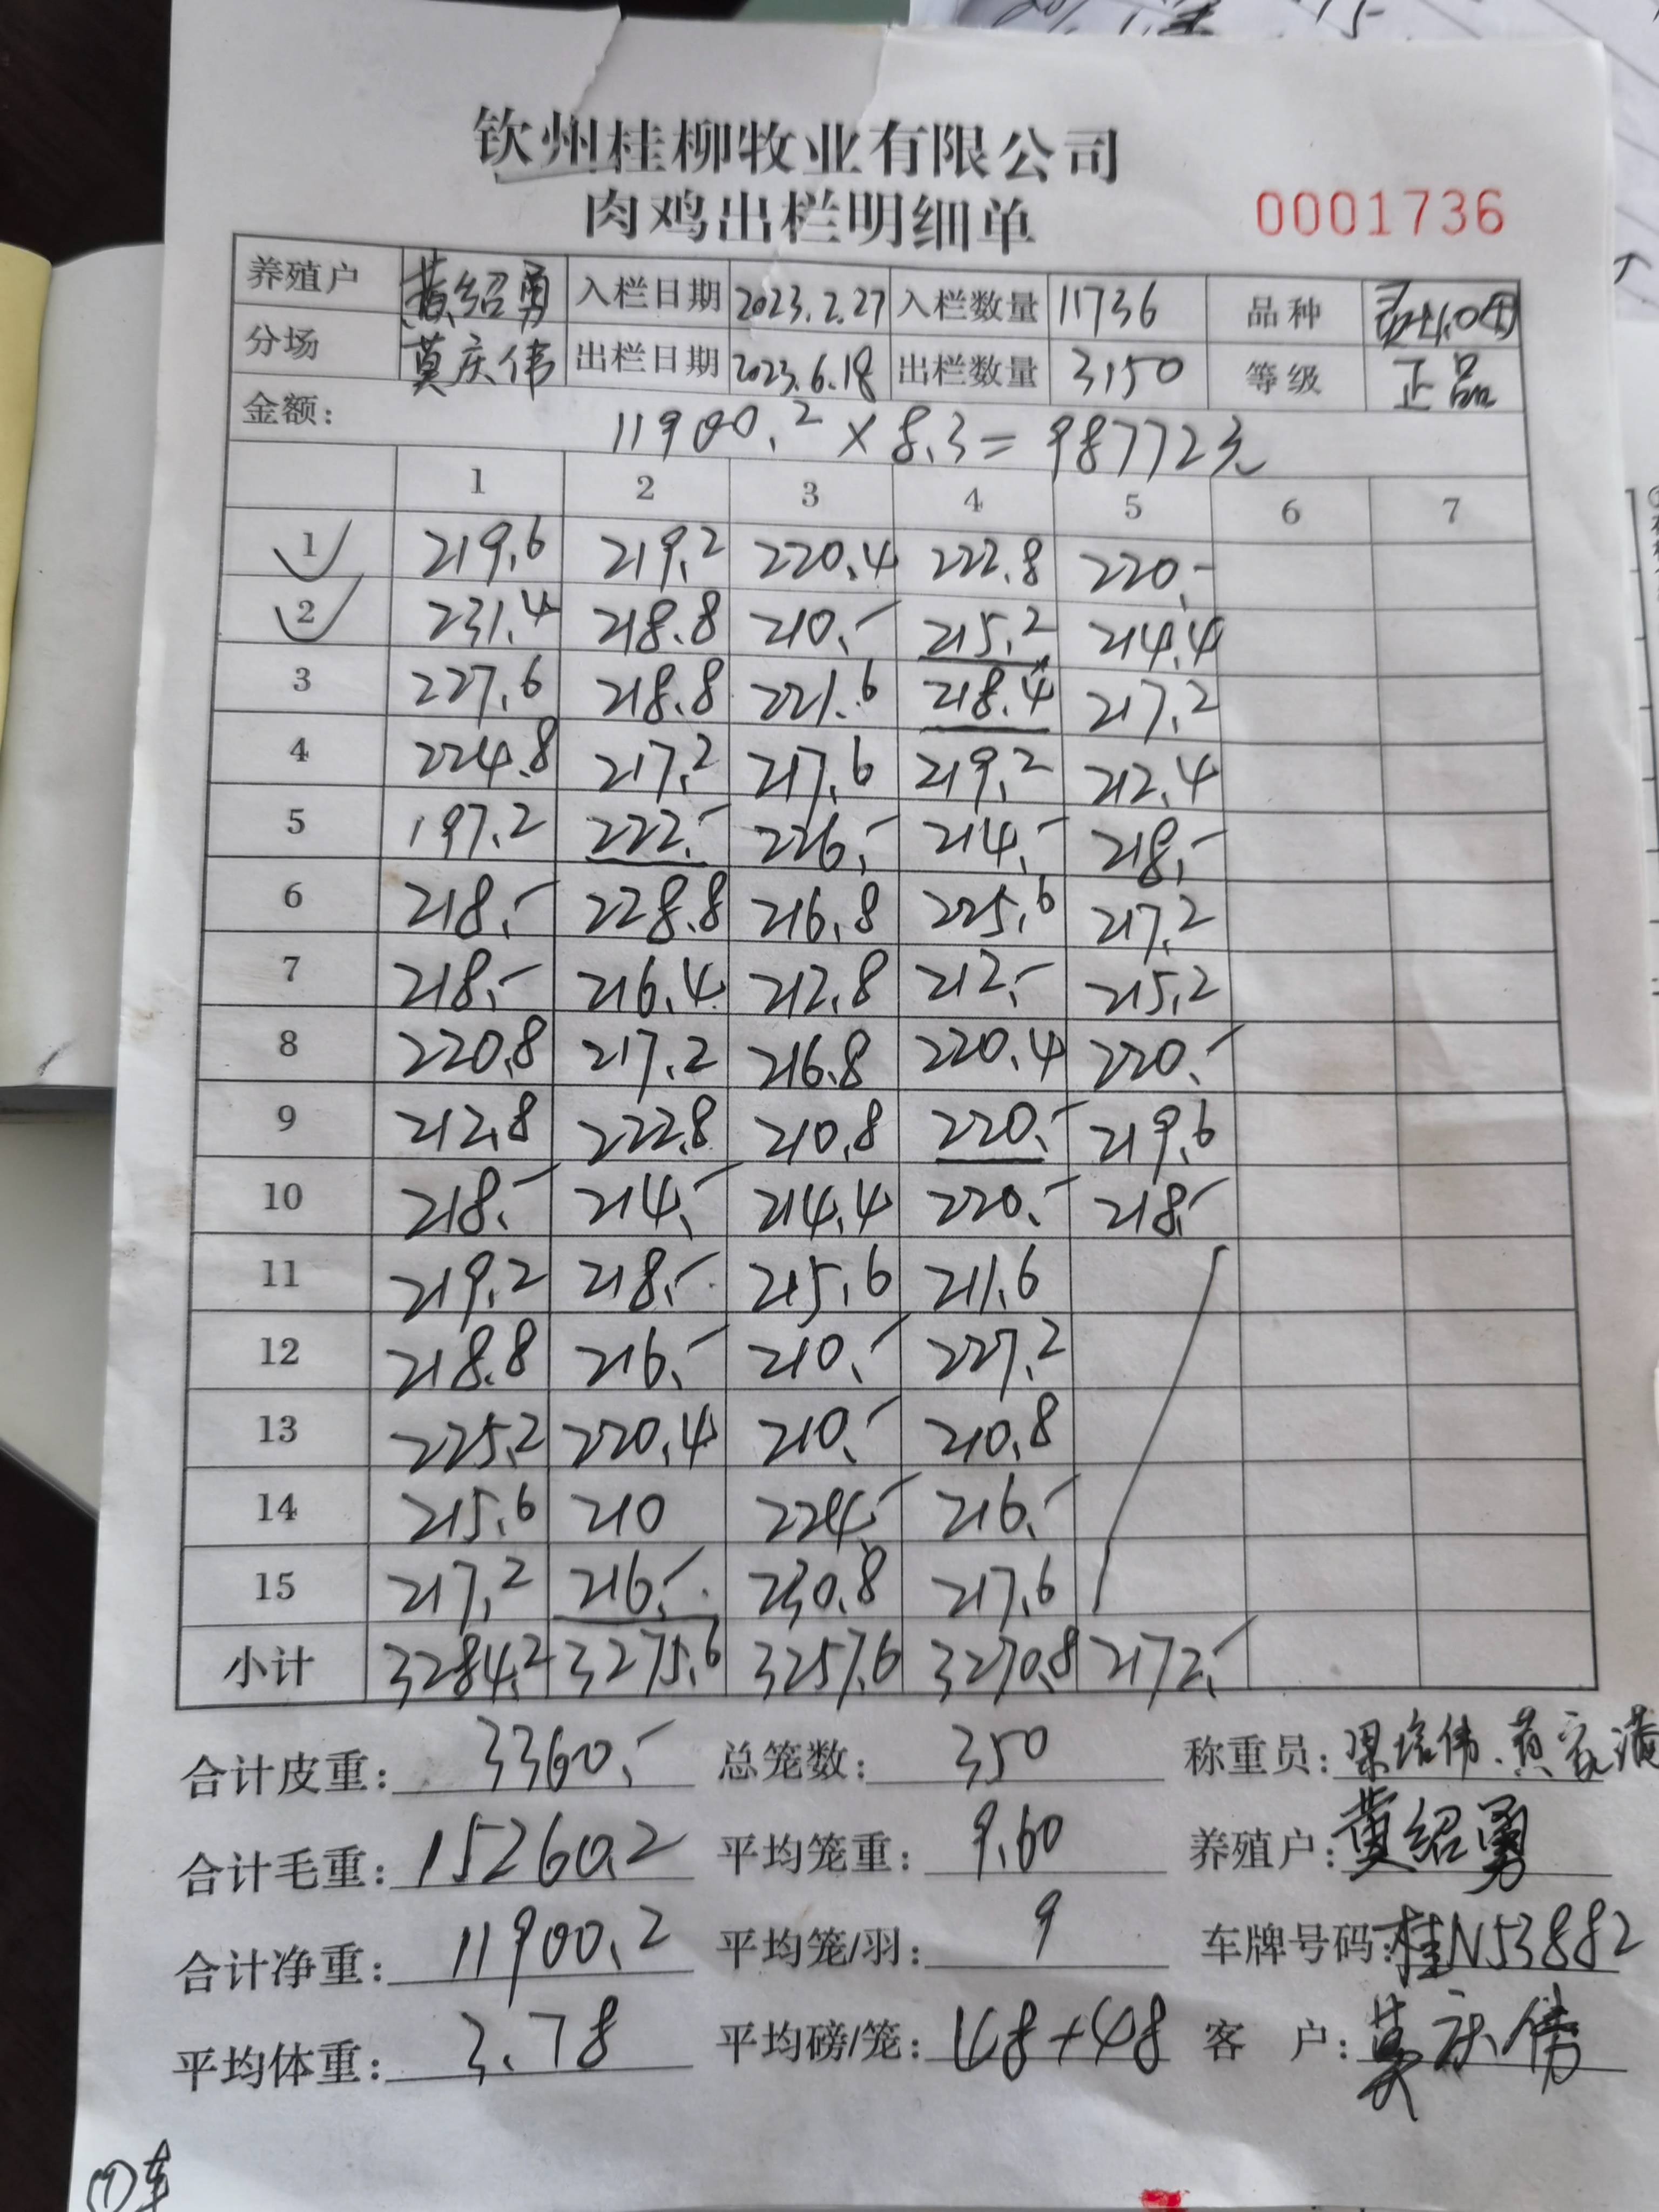 钦州桂柳牧业有限公司
肉鸡出栏明细单 0001736
养殖户 黄绍勇 入栏日期 2023.2.27 入栏数量 11736 品种
分场 莫庆伟 出栏日期 2023.6.18 出栏数量 3150 等级 正品
金额: 11900.2 × 8.3 = 98772元
1 2 3 4 5 6 7
1 219.6 219.2 220.4 222.8 220.-
2 231.4 218.8 210.- 215.2 214.4
3 227.6 218.8 221.6 218.4 217.2
4 224.8 217.2 217.6 219.2 212.4
5 197.2 222.- 226.- 214.- 218.-
6 218.- 228.8 216.8 225.6 217.2
7 218.- 216.4 212.8 212.- 215.2
8 220.8 217.2 216.8 220.4 220.-
9 212.8 222.8 210.8 220.- 219.6
10 218.- 214.- 214.4 220.- 218.-
11 219.2 218.- 215.6 211.6
12 218.8 216.- 210.- 227.2
13 225.2 220.4 210.- 210.8
14 215.6 210 224.- 216.-
15 217.2 216.- 230.8 217.6
小计 3284.2 3275.6 3257.6 3270.8 2172.-
合计皮重: 3360.- 总笼数: 350 称重员:
合计毛重: 15260.2 平均笼重: 9.60 养殖户: 黄绍勇
合计净重: 11900.2 平均笼/羽: 9 车牌号码: 桂N53882
平均体重: 3.78 平均磅/笼: 48+48 客 户: 莫庆伟
①车